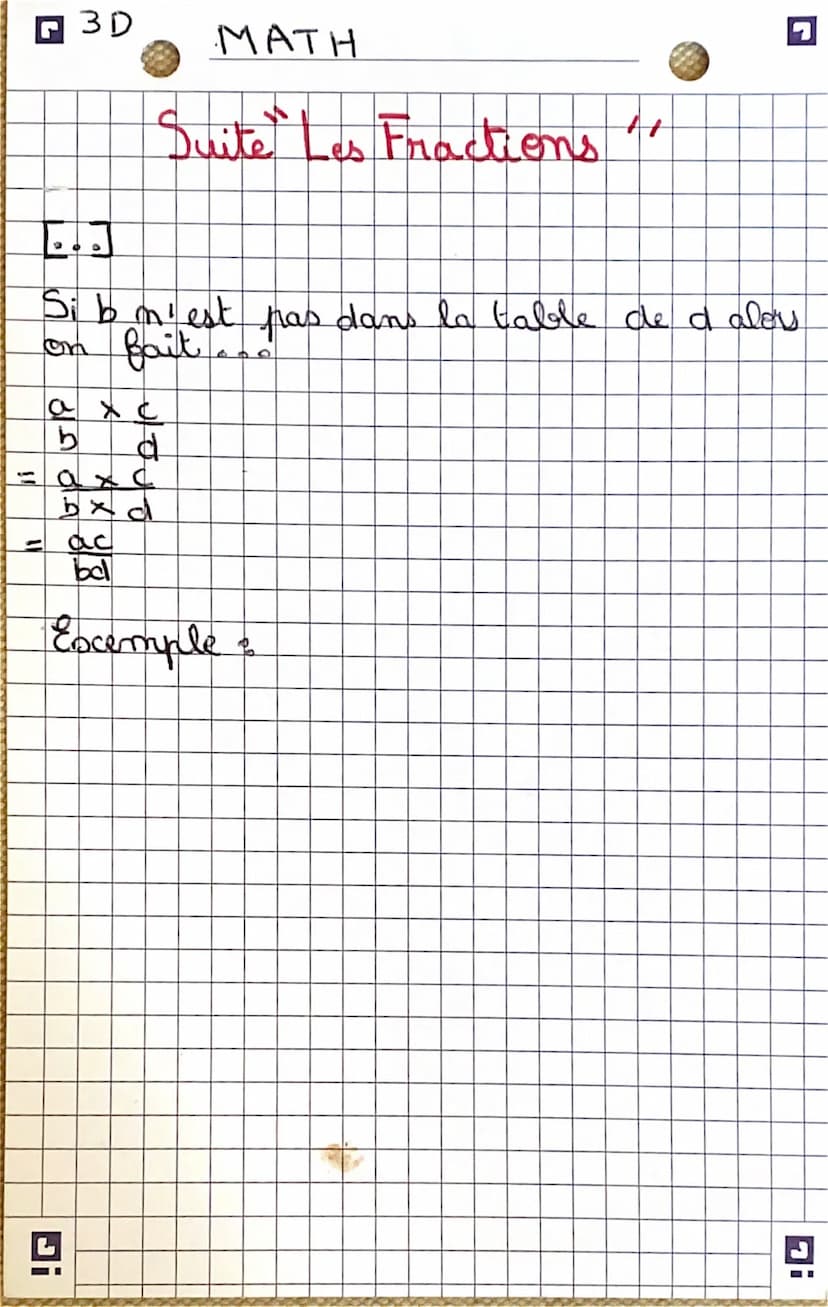 3D
MATH
Suite "Les Fractions"
[...]
Si b n'est pas dans la table de d alors
on fait...
a × c
b d
= a × c
b × d
= ac
bd
Excemple :